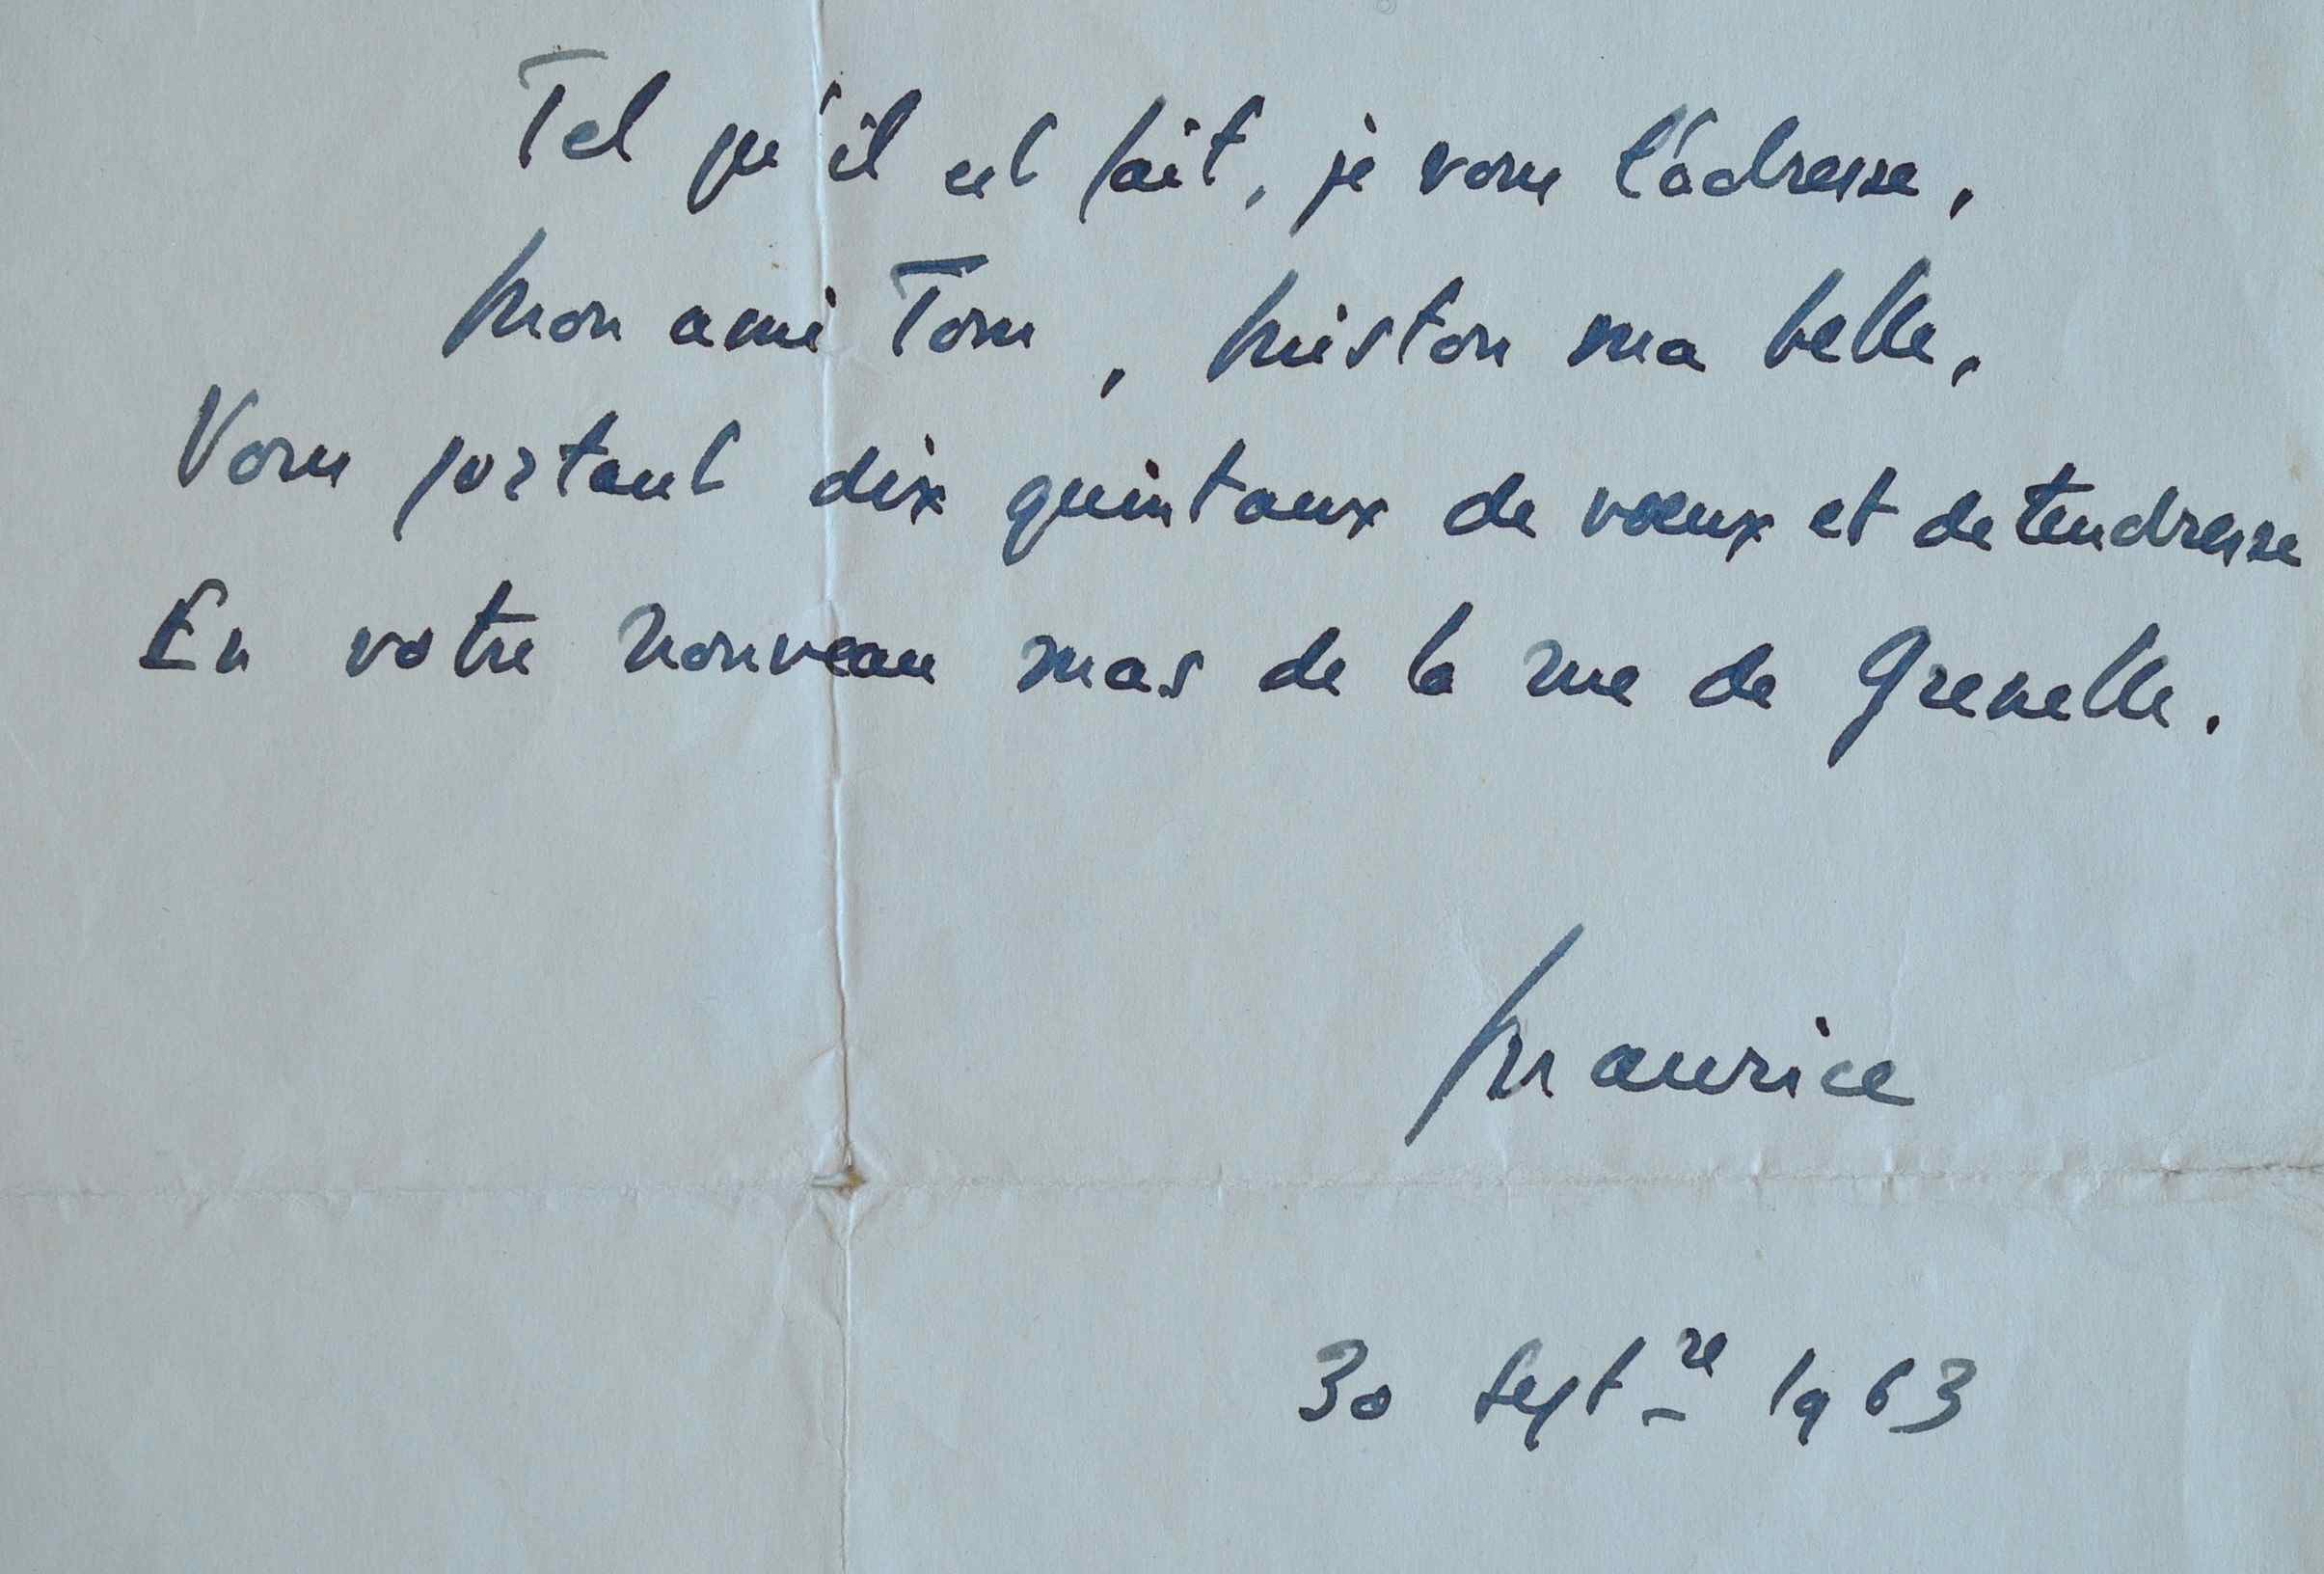 Tel qu'il est fait, je vous l'adresse,
Mon ami Tom, Miston ma belle,
Vous portant dix quintaux de vœux et de tendresse
En votre nouveau mas de la rue de Grenelle.
Maurice
30 Septre 1963